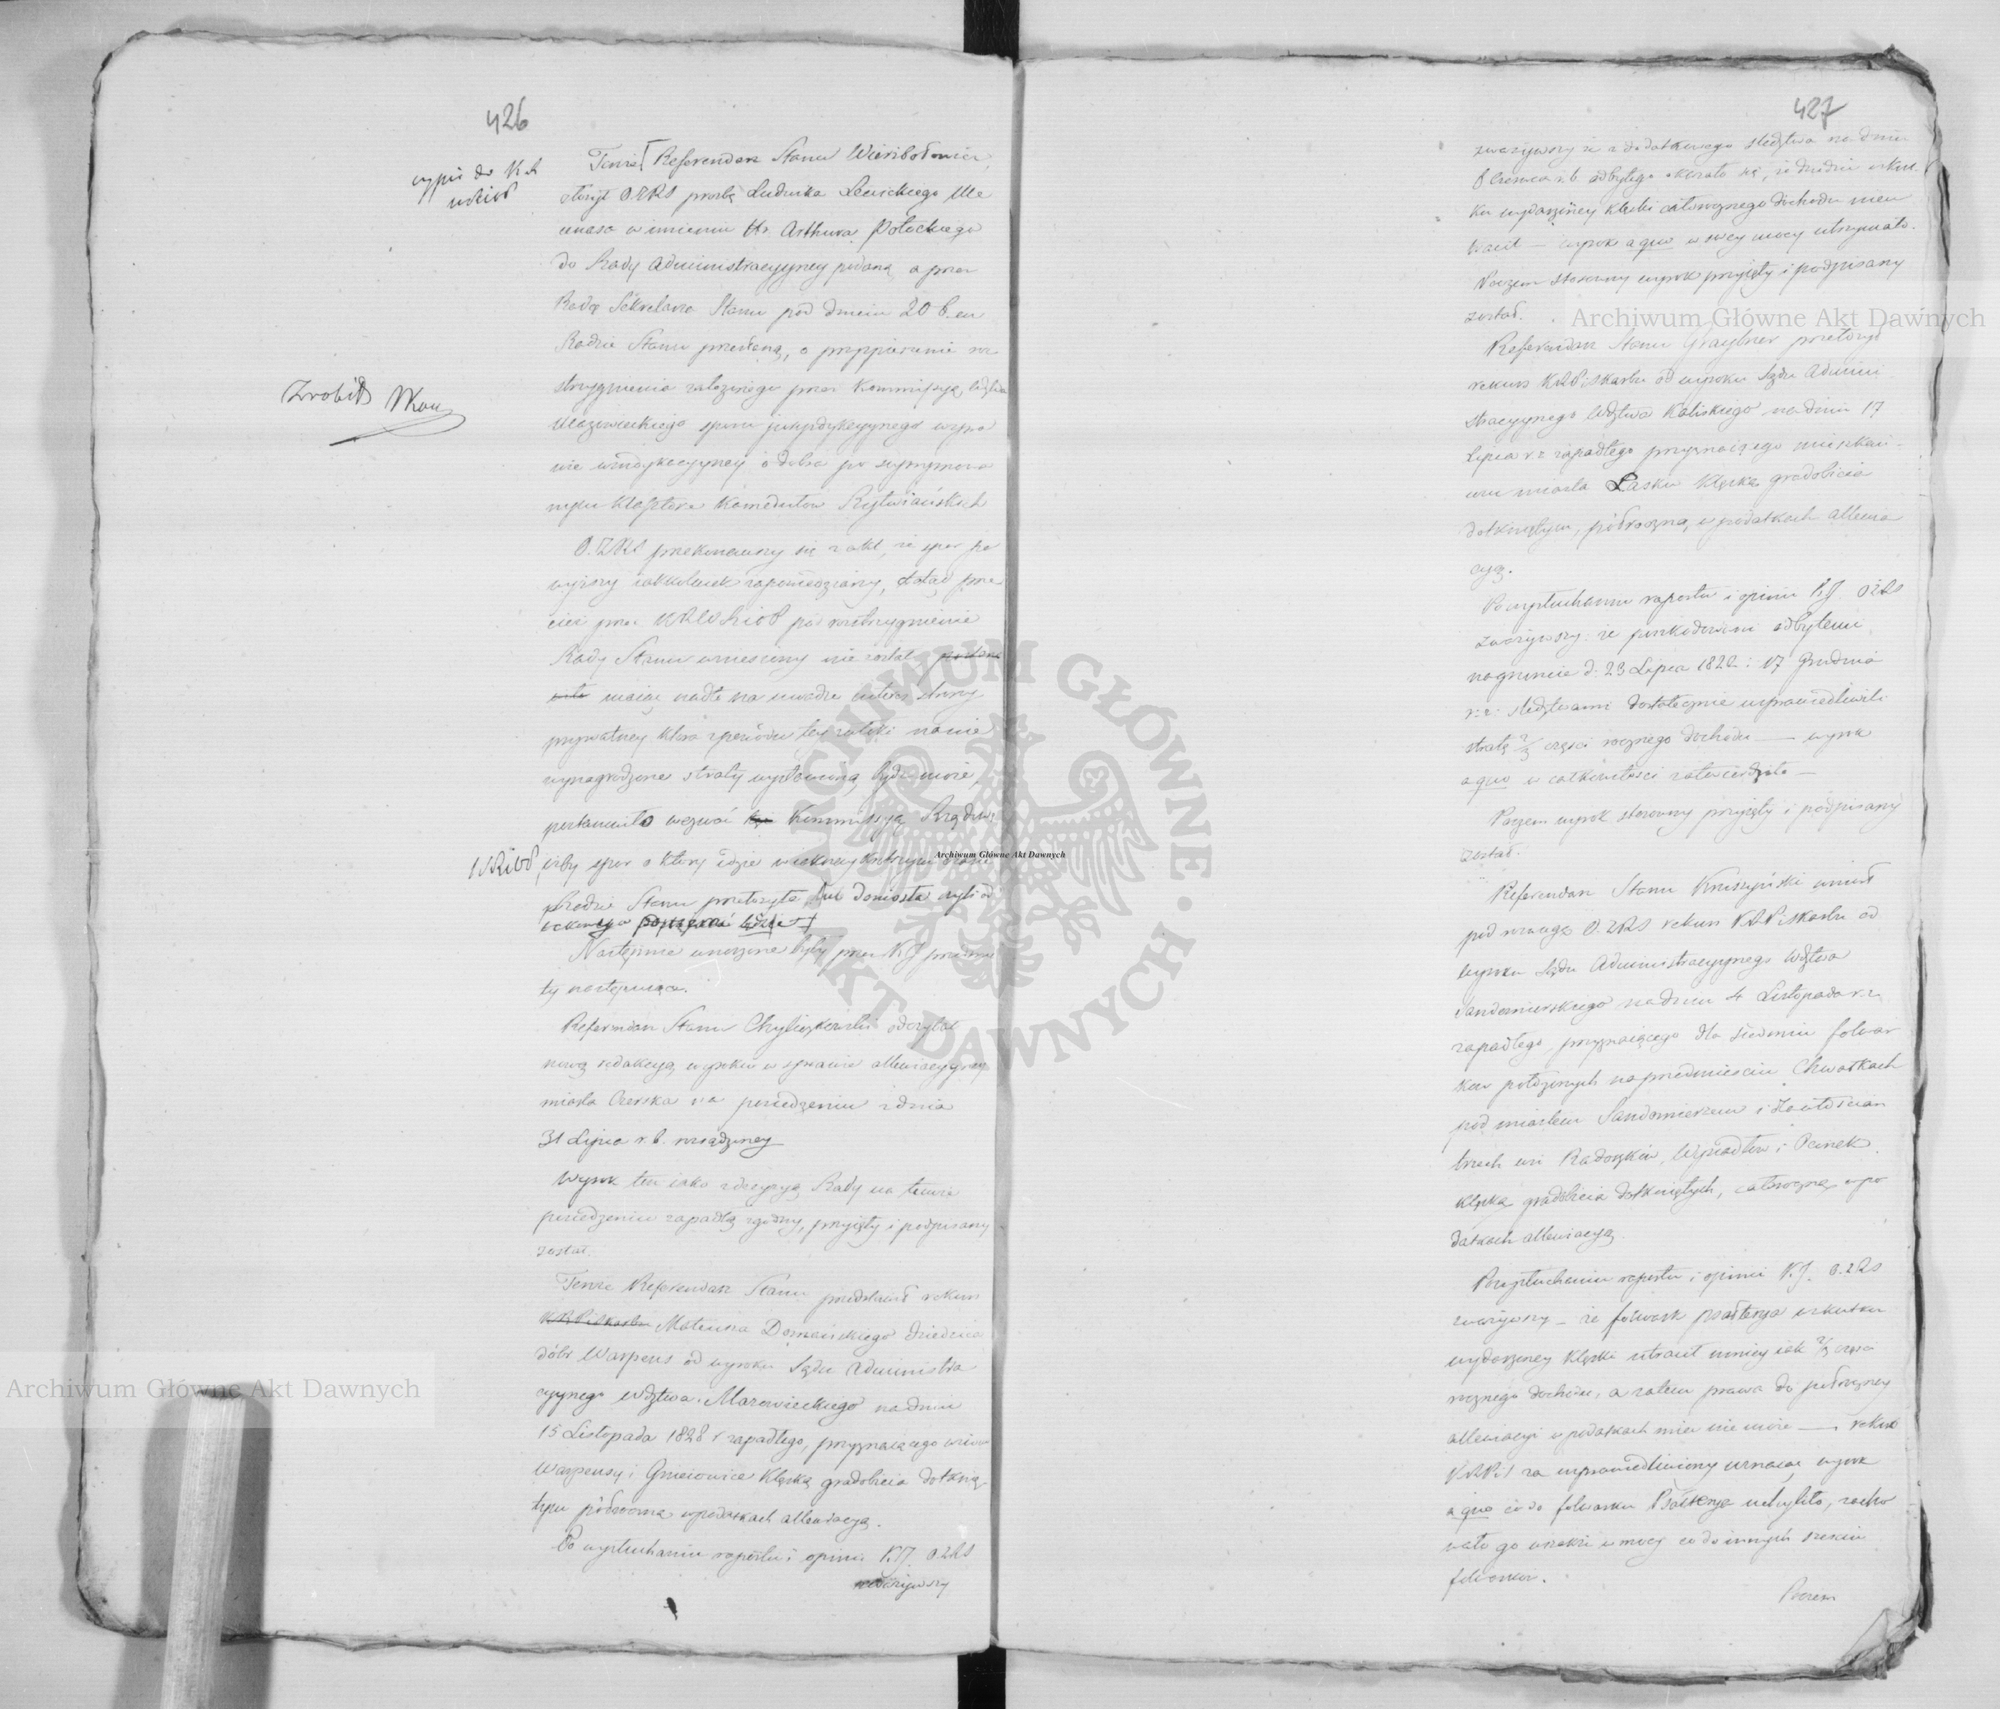 426
wypis do K.R.
Zrobił
Tenże Referendarz Stanu Wierzbołowicz
złożył O.Z.R.S prośbę Ludwika Lewickiego Me
cenasa w imieniu Hr. Arthura Potockiego
do Rady Administracyyney podaną a przez
Radcę Sekretarza Stanu pod dniem 20 b. m
Radzie Stanu przesłaną, o przyspieszenie roz
strzygnienia zaszłego przez Kommissyą Wdztwa
Mazowieckiego sporu jurysdykcyynego wzglę
nie windykacyyney o dobra po suprymowa
nym Klasztorze Kamedułów Rytwiańskich
O.Z.R.S przekonawszy się z akt, że spor po
wyższy jakkolwiek zapowiedziany, dotąd prze
cież przez pod rozstrzygnienie
Rady Stanu wniesiony nie został
maiąc nadto na uwadze interes strony
prywatney która z powodu tey zwłoki na nie
wynagrodzone straty wystawioną bydź może,
postanowiła wezwać Kommissyą Rządową
ażby spor o który idzie
Radzie Stanu przełożyła, lub doniosła czyli od
Następnie wnoszone były przez K.J przedmio
ty następujące.
Referendarz Stanu Chyliczkowski odczytał
nową redakcyą wyroku w sprawie allewiacyyney
miasta Czerska na posiedzeniu z dnia
31 Lipca r. b. osądzoney
Wyrok ten jako z decyzyą Rady na temże
posiedzeniu zapadłą zgodny, przyięty i podpisany
został.
Tenże Referendarz Stanu przedstawił rekurs
Mateusza Domańskiego dziedzica
dóbr Warpęsy od wyroku Sądu Administra
cyynego Wdztwa Mazowieckiego na dniu
15 Listopada 1828 r zapadłego, przyznaiącego wsiom
Warpęsy i Gniewowice klęską gradobicia dotknię
tym półroczną w podatkach allewiacyą.
Po wysłuchaniu raportu i opinii K.J. O.Z.R.S
zważywszy
427
zważywszy że z dodatkowego śledztwa na dniu
8 Czerwca r. b. odbytego okazało się, że dziedzic w skut
ku wydarzoney klęski całorocznego dochodu nieu
tracił — wyrok a quo w swey mocy utrzymało.
Poczem stosowny wyrok przyięty i podpisany
został.
Referendarz Stanu Graybner przełożył
rekurs K.R.P. i Skarbu od wyroku Sądu Admini
stracyynego Wdztwa Kaliskiego na dniu 17
Lipca r. z zapadłego przyznaiącego mieszkań
com miasta Łasku klęską gradobicia
dotkniętym, półroczną w podatkach allewia
cyą.
Po wysłuchaniu raportu i opinii K.J. O.Z.R.S
zważywszy: że poszkodowani odbytemi
na gruncie d. 23 Lipca 1828 i 17 Grudnia
r: z: śledztwami dostatecznie usprawiedliwili
stratę 2/3 części rocznego dochodu — wyrok
a quo w całkowitości zatwierdziła —
Poczem wyrok stosowny przyięty i podpisany
został.
Referendarz Stanu Kruszyński wniósł
pod rozwagę O.Z.R.S rekurs K.R.P. i Skarbu od
wyroku Sądu Administracyynego Wdztwa
Sandomierskiego na dniu 4 Listopada r. z
zapadłego, przyznaiącego dla siedmiu folwar
ków położonych na przedmieściu Chwałkach
pod miastem Sandomierzem i włościan
trzech wsi Radoszków, Wysiadłów i Ocinek
klęską gradobicia dotkniętych, całoroczną w po
datkach allewiacyą.
Po wysłuchaniu raportu i opinii K.J. O.Z.R.S
zważywszy — że folwark Psałterya w skutku
wydarzoney klęski utracił mniey iak 2/3 części
rocznego dochodu, a zatem prawa do półroczney
allewiacyi w podatkach mieć nie może — rekurs
K.R.P. i S za usprawiedliwiony uznaiąc wyrok
a quo co do folwarku Psałterya uchyliło, zacho
wało go wszakże w mocy co do innych sześciu
folwarków.
Poczem
Archiwum Główne Akt Dawnych
Archiwum Główne Akt Dawnych
Archiwum Główne Akt Dawnych
ARCHIWUM GŁÓWNE · AKT DAWNYCH ·